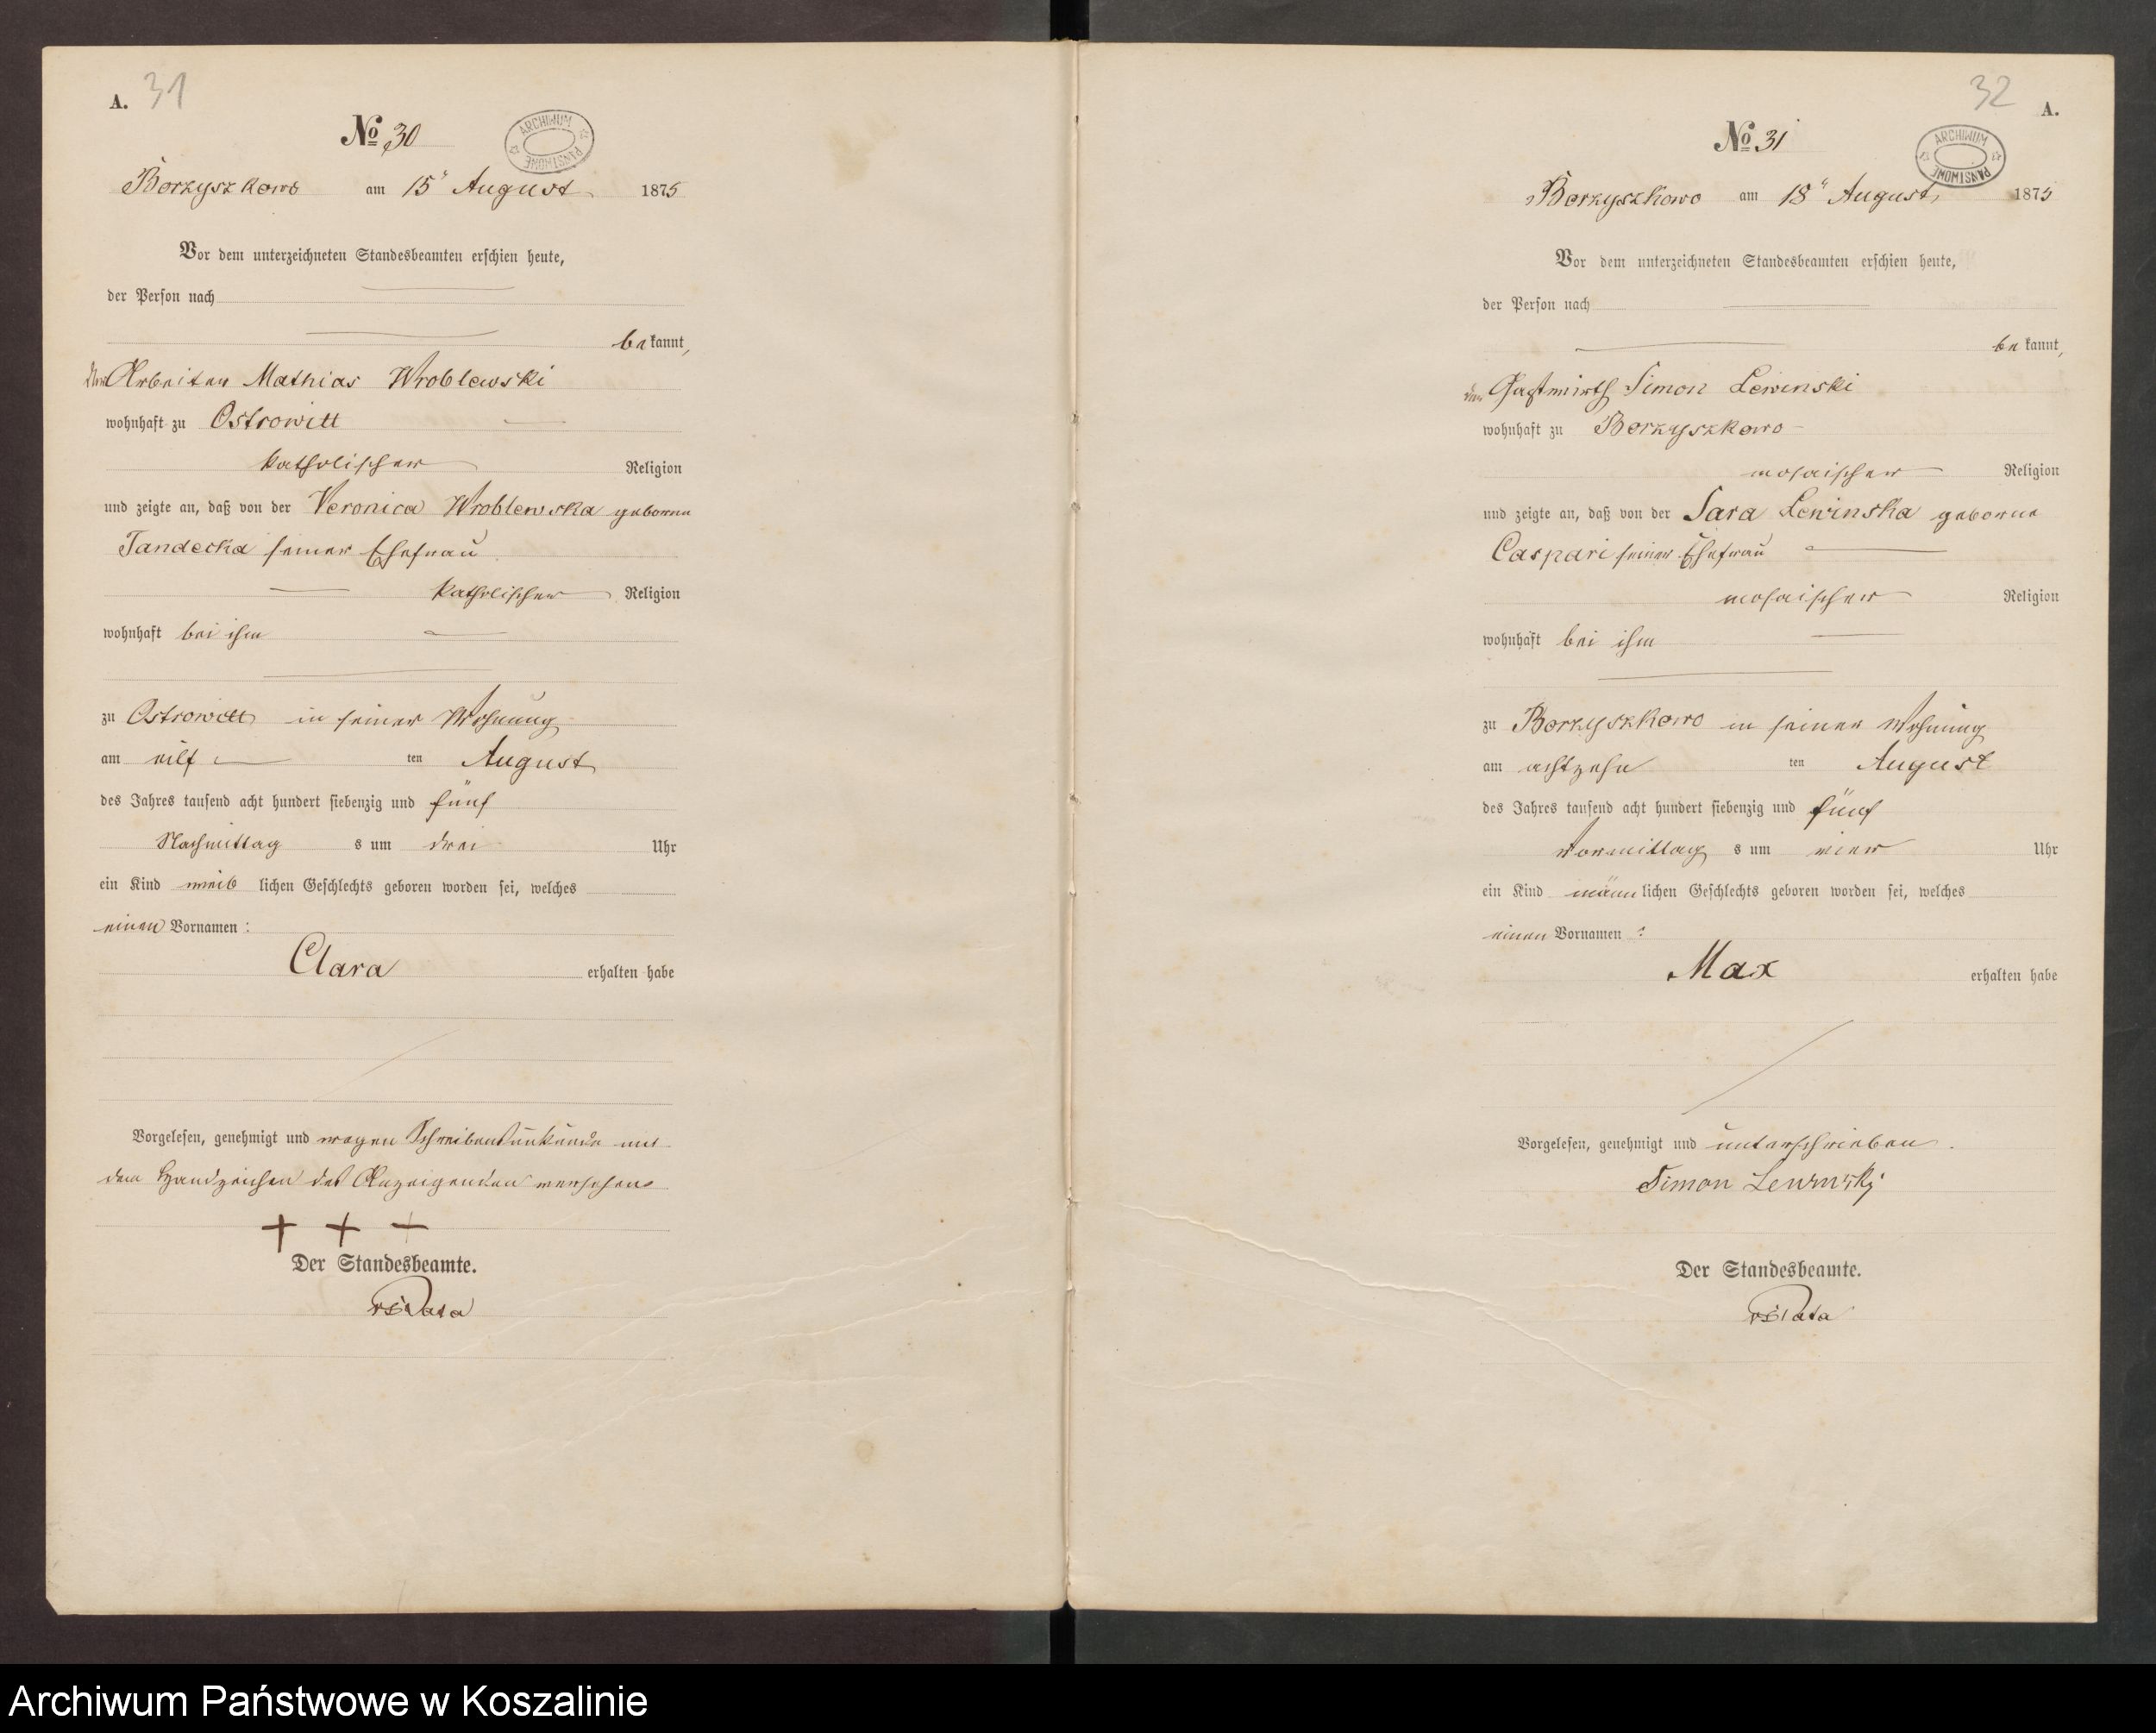 A. 31
No 30
ARCHIWUM PAŃSTWOWE
Borzyszkowo am 15" August 1875
Vor dem unterzeichneten Standesbeamten erschien heute,
der Person nach
bekannt,
der Arbeiter Mathias Wroblewski
wohnhaft zu Ostrowitt
katholischer Religion
und zeigte an, daß von der Veronica Wroblewska geborne
Tandecka seiner Ehefrau
katholischer Religion
wohnhaft bei ihm
zu Ostrowitt in seiner Wohnung
am eilf ten August
des Jahres tausend acht hundert siebenzig und fünf
Nachmittag s um drei Uhr
ein Kind weib lichen Geschlechts geboren worden sei, welches
einen Vornamen :
Clara erhalten habe
Vorgelesen, genehmigt und wegen Schreibensunkunde mit
dem Handzeichen des Anzeigenden versehen
+ + +
Der Standesbeamte.
32 A.
No 31
ARCHIWUM PAŃSTWOWE
Borzyszkowo am 18" August 1875
Vor dem unterzeichneten Standesbeamten erschien heute,
der Person nach
bekannt,
der Gastwirth Simon Lewinski
wohnhaft zu Borzyszkowo
mosaischer Religion
und zeigte an, daß von der Sara Lewinska geborne
Caspari seiner Ehefrau
mosaischer Religion
wohnhaft bei ihm
zu Borzyszkowo in seiner Wohnung
am achtzehn ten August
des Jahres tausend acht hundert siebenzig und fünf
Vormittag s um vier Uhr
ein Kind männ lichen Geschlechts geboren worden sei, welches
einen Vornamen :
Max erhalten habe
Vorgelesen, genehmigt und unterschrieben.
Simon Lewinski
Der Standesbeamte.
Archiwum Państwowe w Koszalinie